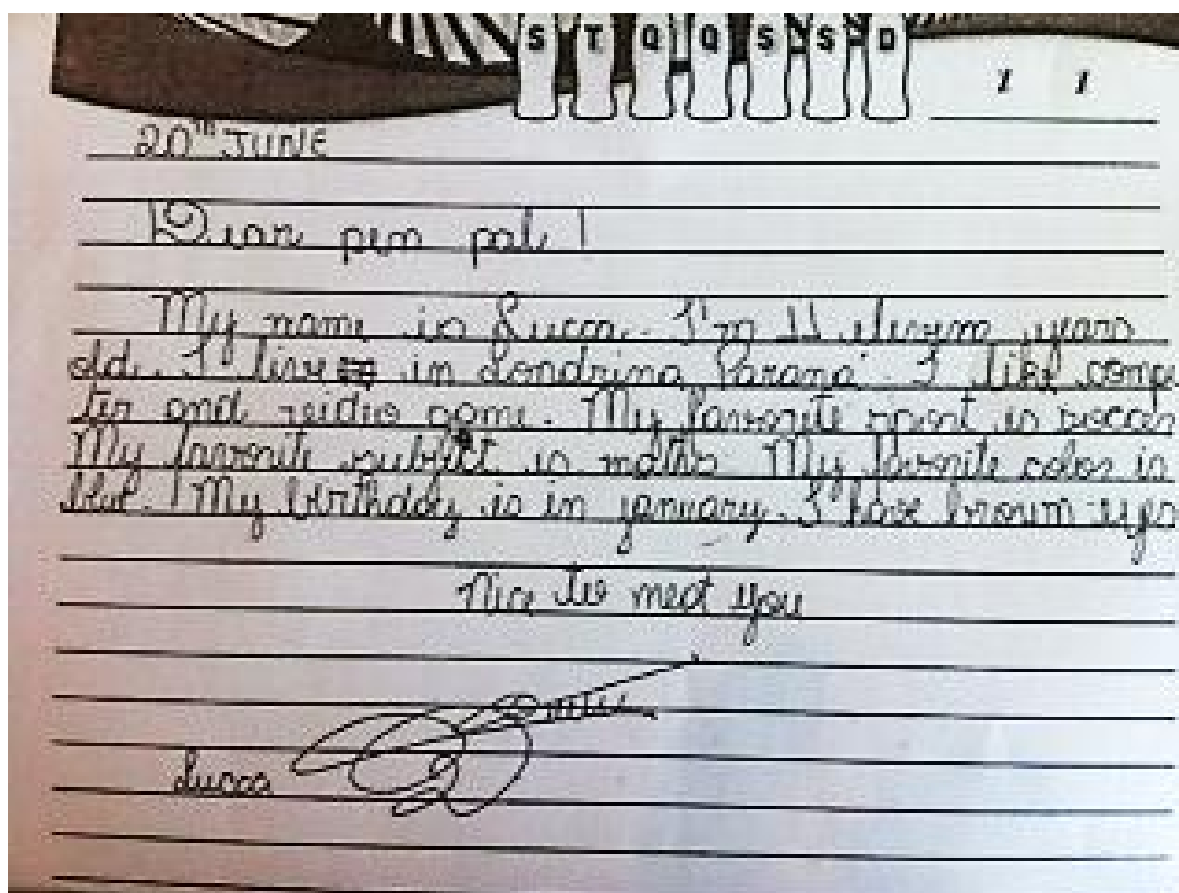 S T Q Q S S D / /
20th JUNE
Dear pen pal!
My name is Lucca. I'm 11 eleven years
old. I live in Londrina Paraná. I like compu
ter and veidio game. My favorite sport is soccer
My favorite subject is maths My favorite color is
blue. My birthday is in january. I have brown eyes
Nice to meet you
Lucca